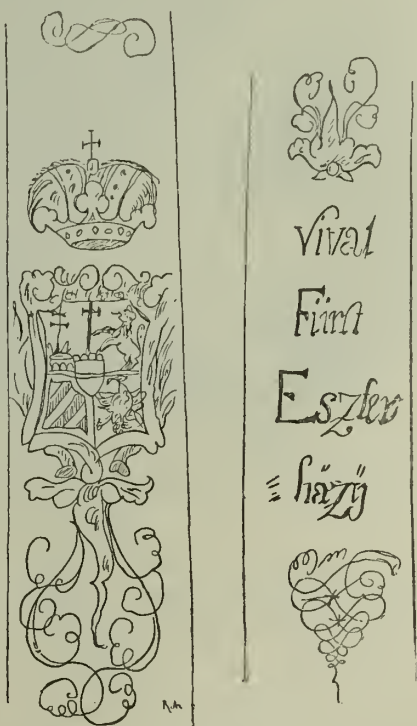 Vivat
Fürst
Eszter
= häzÿ